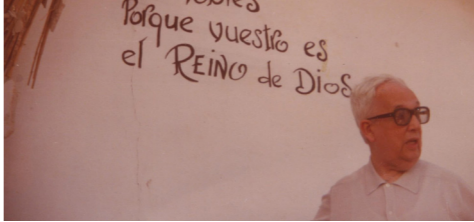 Porque vuestro es
el REINO de DioS